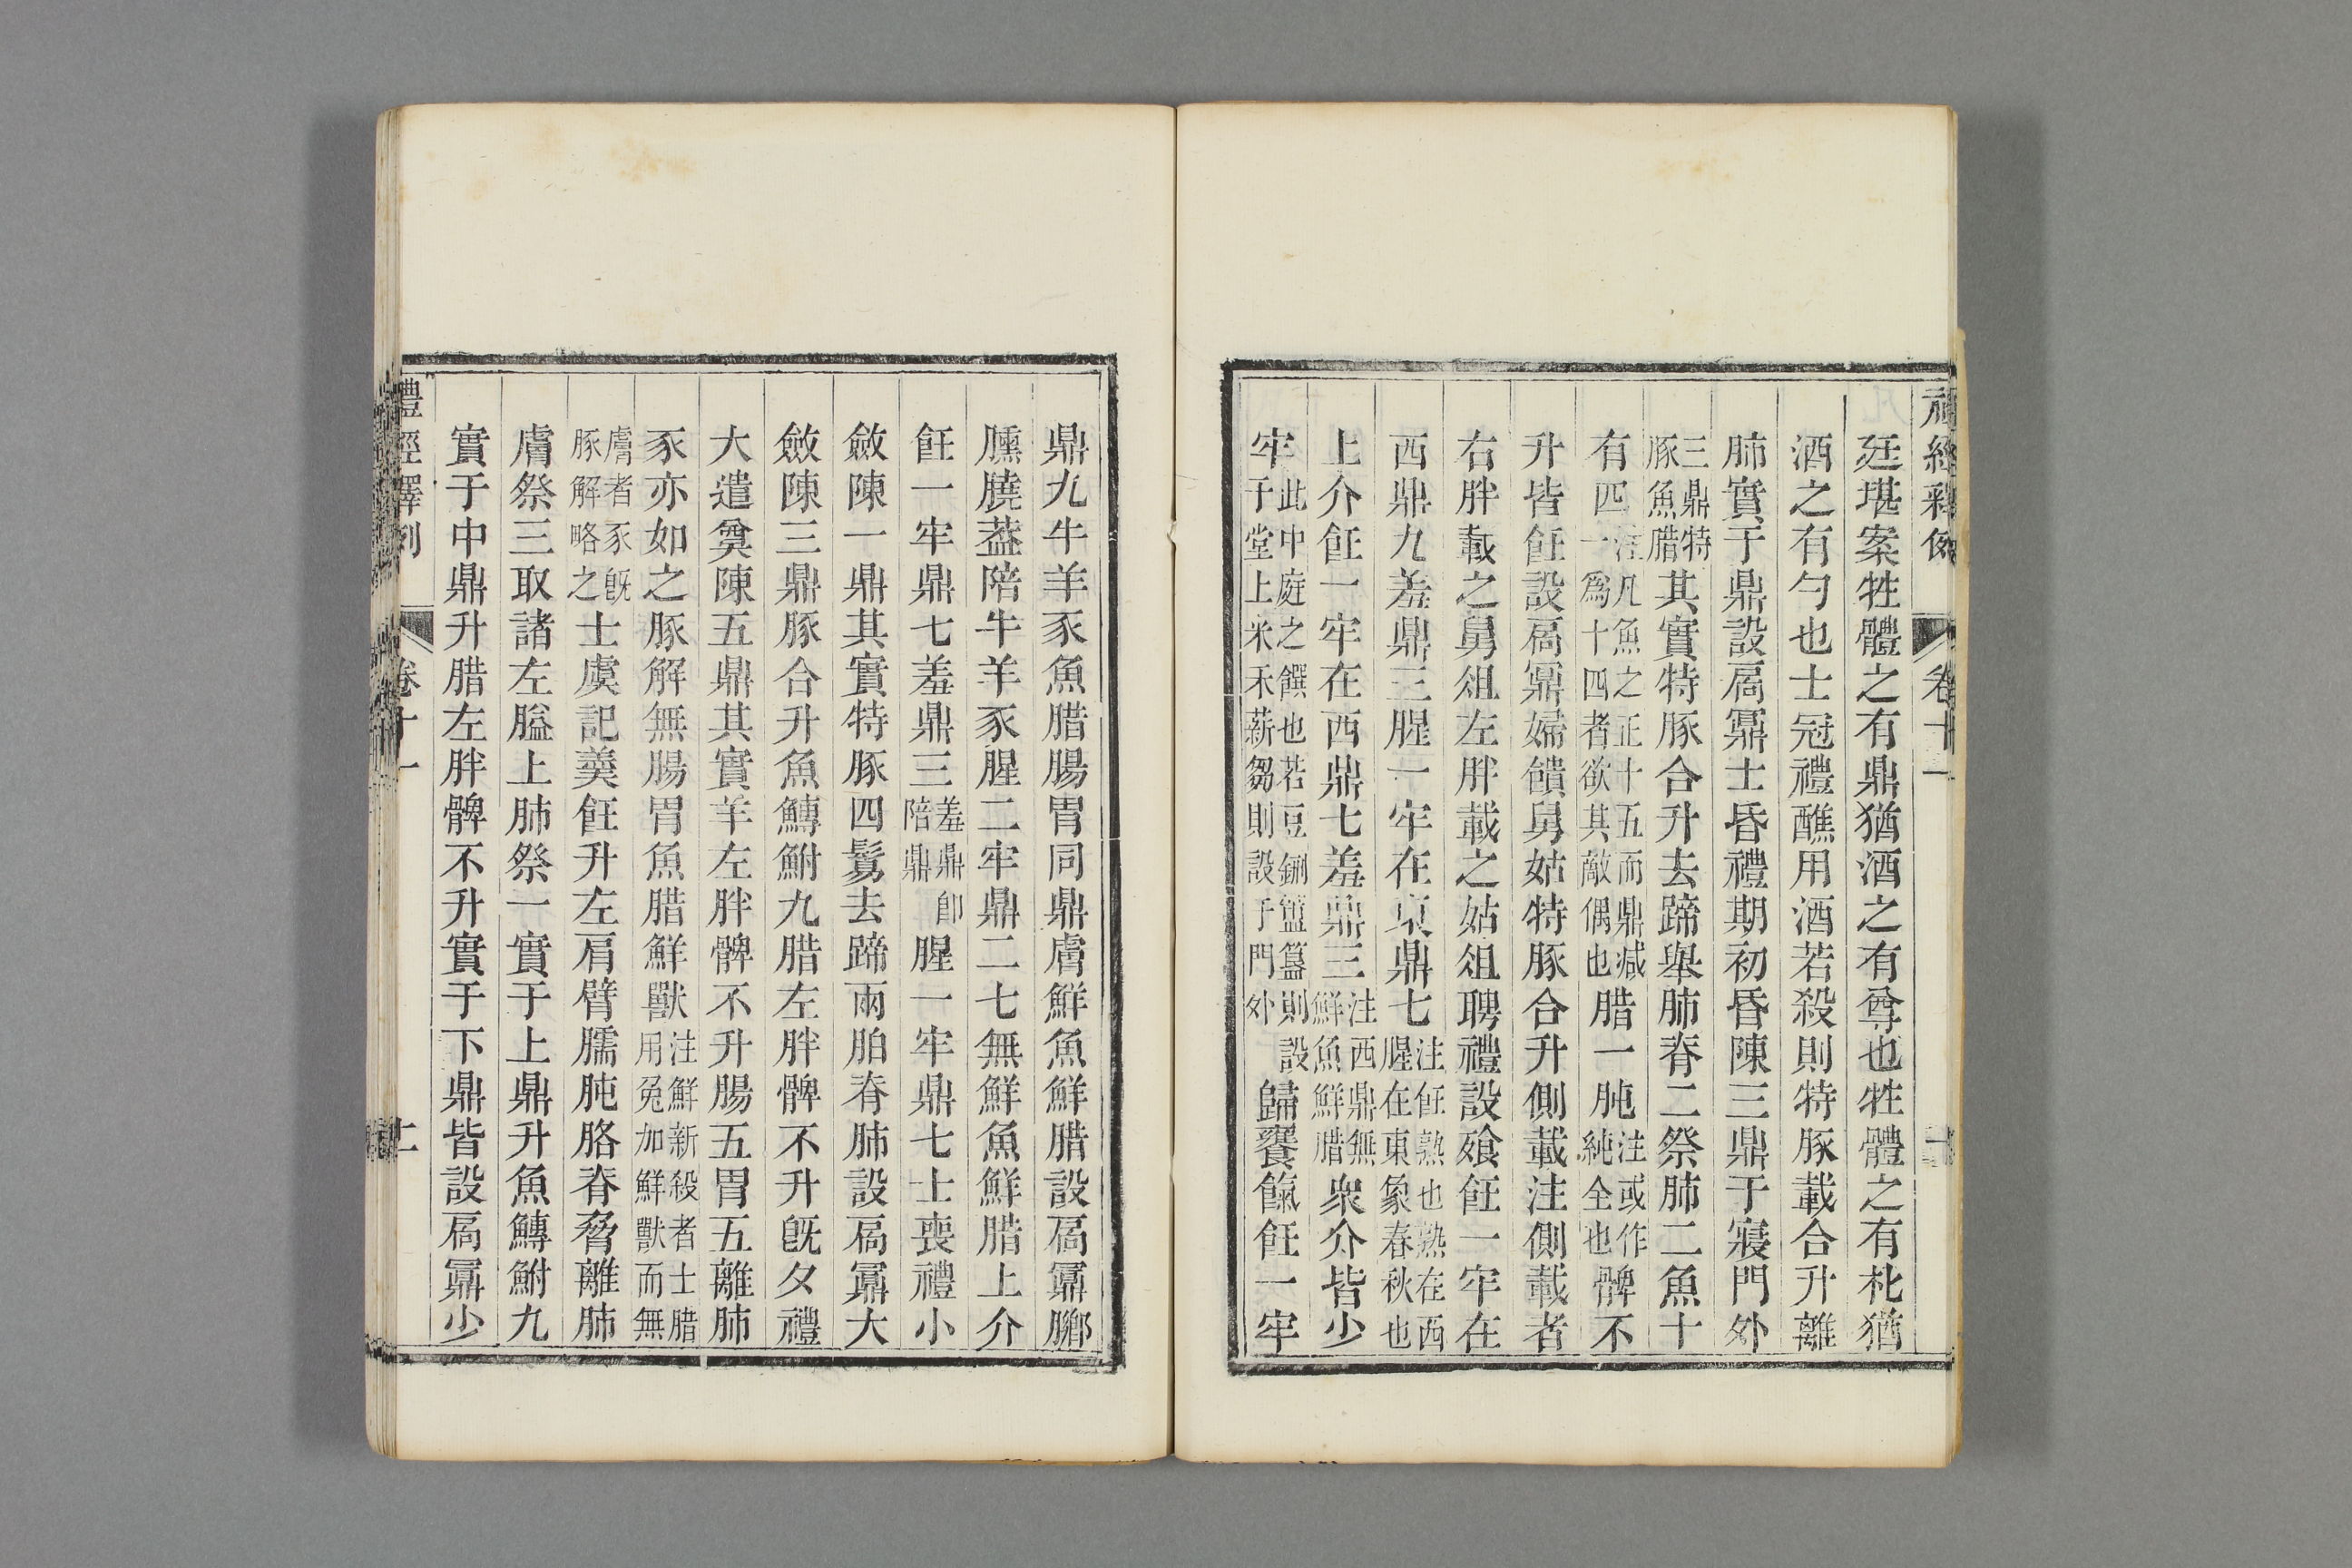 禮經釋例 卷十一
廷堪案牲體之有鼎猶酒之有尊也牲體之有朼猶
酒之有勺也士冠禮醮用酒若殺則特豚載合升離
肺實于鼎設扃鼏士昏禮期初昏陳三鼎于寢門外
三鼎特豚魚腊特其實特豚合升去蹄舉肺脊二祭肺二魚十
有四注凡魚之正十五而鼎減一爲十四者欲其敵偶也腊一肫注或作純純全也髀不
升皆飪設扃鼏婦饋舅姑特豚合升側載注側載者
右胖載之舅俎左胖載之姑俎聘禮設飧飪一牢在
西鼎九羞鼎三腥一牢在東鼎七注飪熟也熟在西腥在東象春秋也
上介飪一牢在西鼎七羞鼎三注西鼎無鮮魚鮮腊衆介皆少
牢此中庭之饌也若豆鉶簠簋則設于堂上米禾薪芻則設于門外歸饔餼飪一牢
鼎九牛羊豕魚腊腸胃同鼎膚鮮魚鮮腊設扃鼏膷
臐膮蓋陪牛羊豕腥二牢鼎二七無鮮魚鮮腊上介
飪一牢鼎七羞鼎三羞鼎卽陪鼎腥一牢鼎七士喪禮小
斂陳一鼎其實特豚四鬄去蹄兩胉脊肺設扃鼏大
斂陳三鼎豚合升魚鱄鮒九腊左胖髀不升旣夕禮
大遣奠陳五鼎其實羊左胖髀不升腸五胃五離肺
豕亦如之豚解無腸胃魚腊鮮獸注鮮新殺者士腊用兔加鮮獸而無
膚者豕旣豚解略之士虞記羹飪升左肩臂臑肫胳脊脅離肺
膚祭三取諸左膉上肺祭一實于上鼎升魚鱄鮒九
實于中鼎升腊左胖髀不升實于下鼎皆設扃鼏少
禮經釋例 卷十一 二